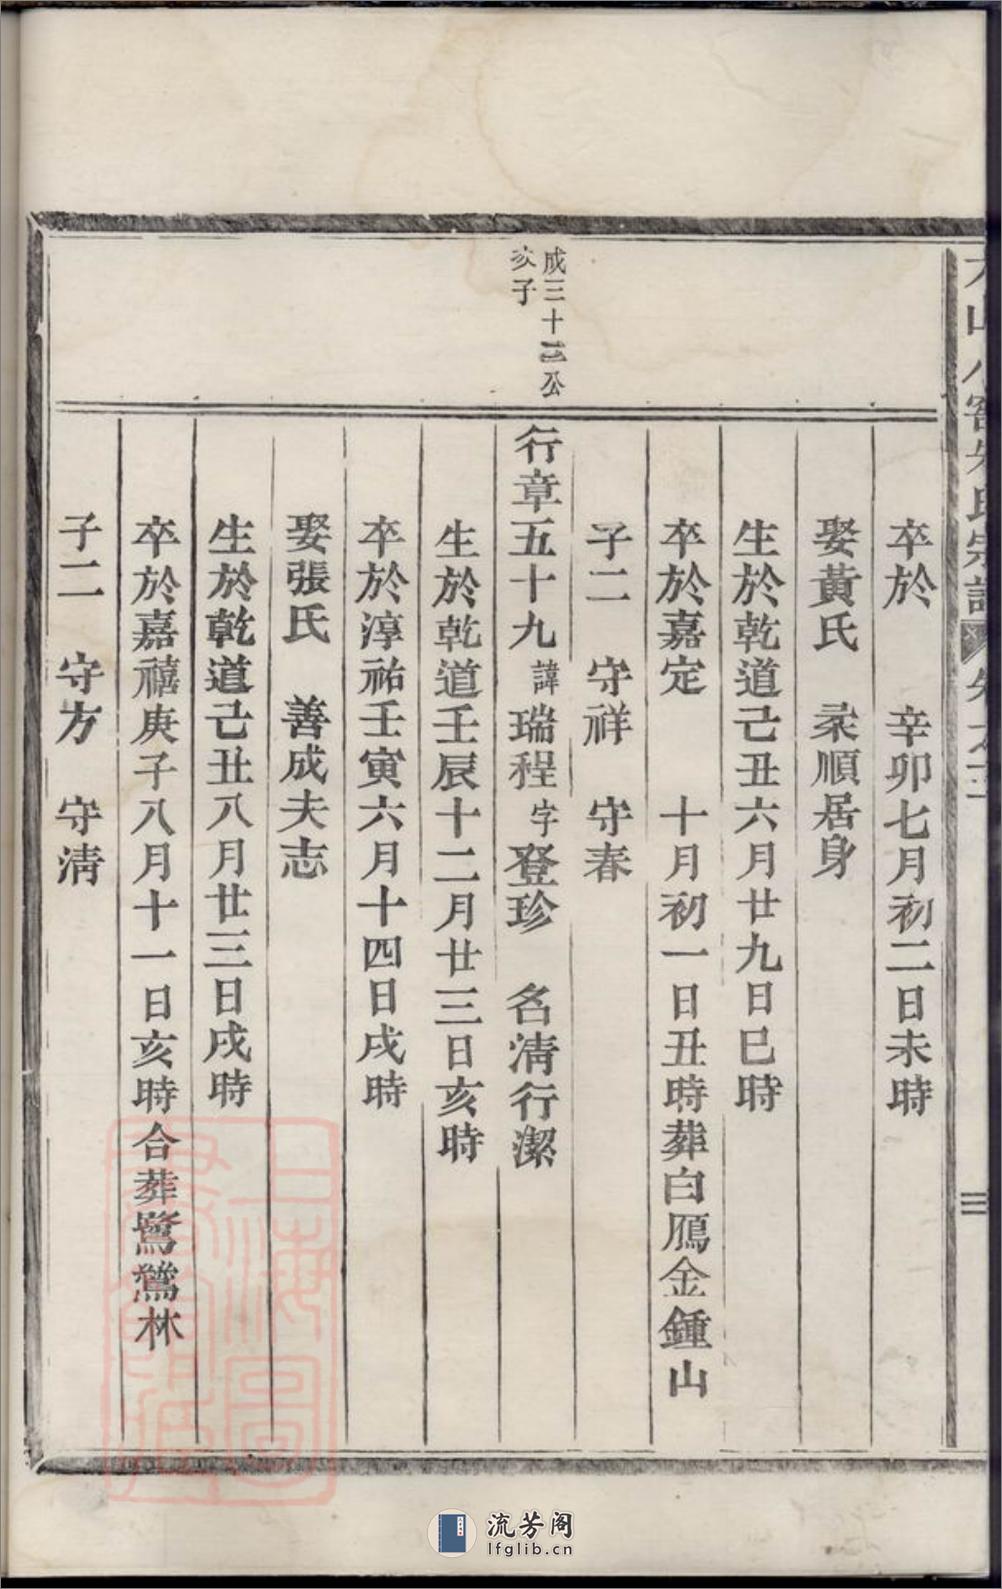 卒於　辛卯七月初二日未時
娶黃氏　柔順居身
生於乾道己丑六月廿九日巳時
卒於嘉定　十月初一日丑時葬白鴈金鍾山
子二　守祥　守春
成三十三公
亥子
行章五十九諱瑞程字登珍　名淸行潔
生於乾道壬辰十二月廿三日亥時
卒於淳祐壬寅六月十四日戌時
娶張氏　善成夫志
生於乾道己丑八月廿三日戌時
卒於嘉禧庚子八月十一日亥時合葬鷺鷥林
子二　守方　守淸
上海圖書館藏
流芳阁
lfglib.cn